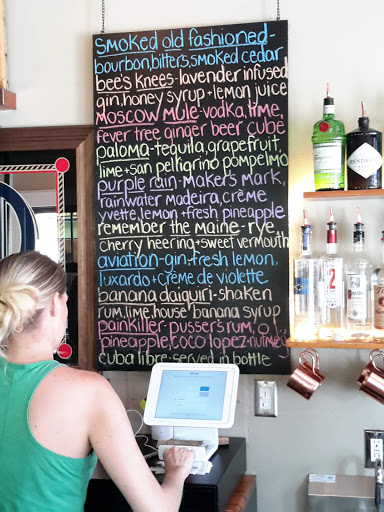 smoked old fashioned-
bourbon, bitters, smoked cedar
bee's knees-lavender infused
gin, honey syrup + lemon juice
moscow mule-vodka, lime,
fever tree ginger beer cube
paloma-tequila, grapefruit,
lime + san pelligrino pompelmo
purple rain-makers mark,
rainwater madeira, crème
yvette, lemon + fresh pineapple
remember the maine-rye,
cherry heering + sweet vermouth
aviation-gin-fresh lemon,
luxardo + crème de violette
banana daiquiri-shaken
rum, lime, house banana syrup
painkiller-pusser's rum,
pineapple, coco lopez-nutmeg
cuba libre-served in bottle
HENDRICK'S
2